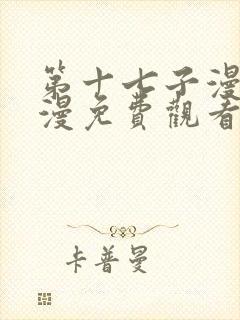 第十七子漫
漫免費觀看
卡普曼